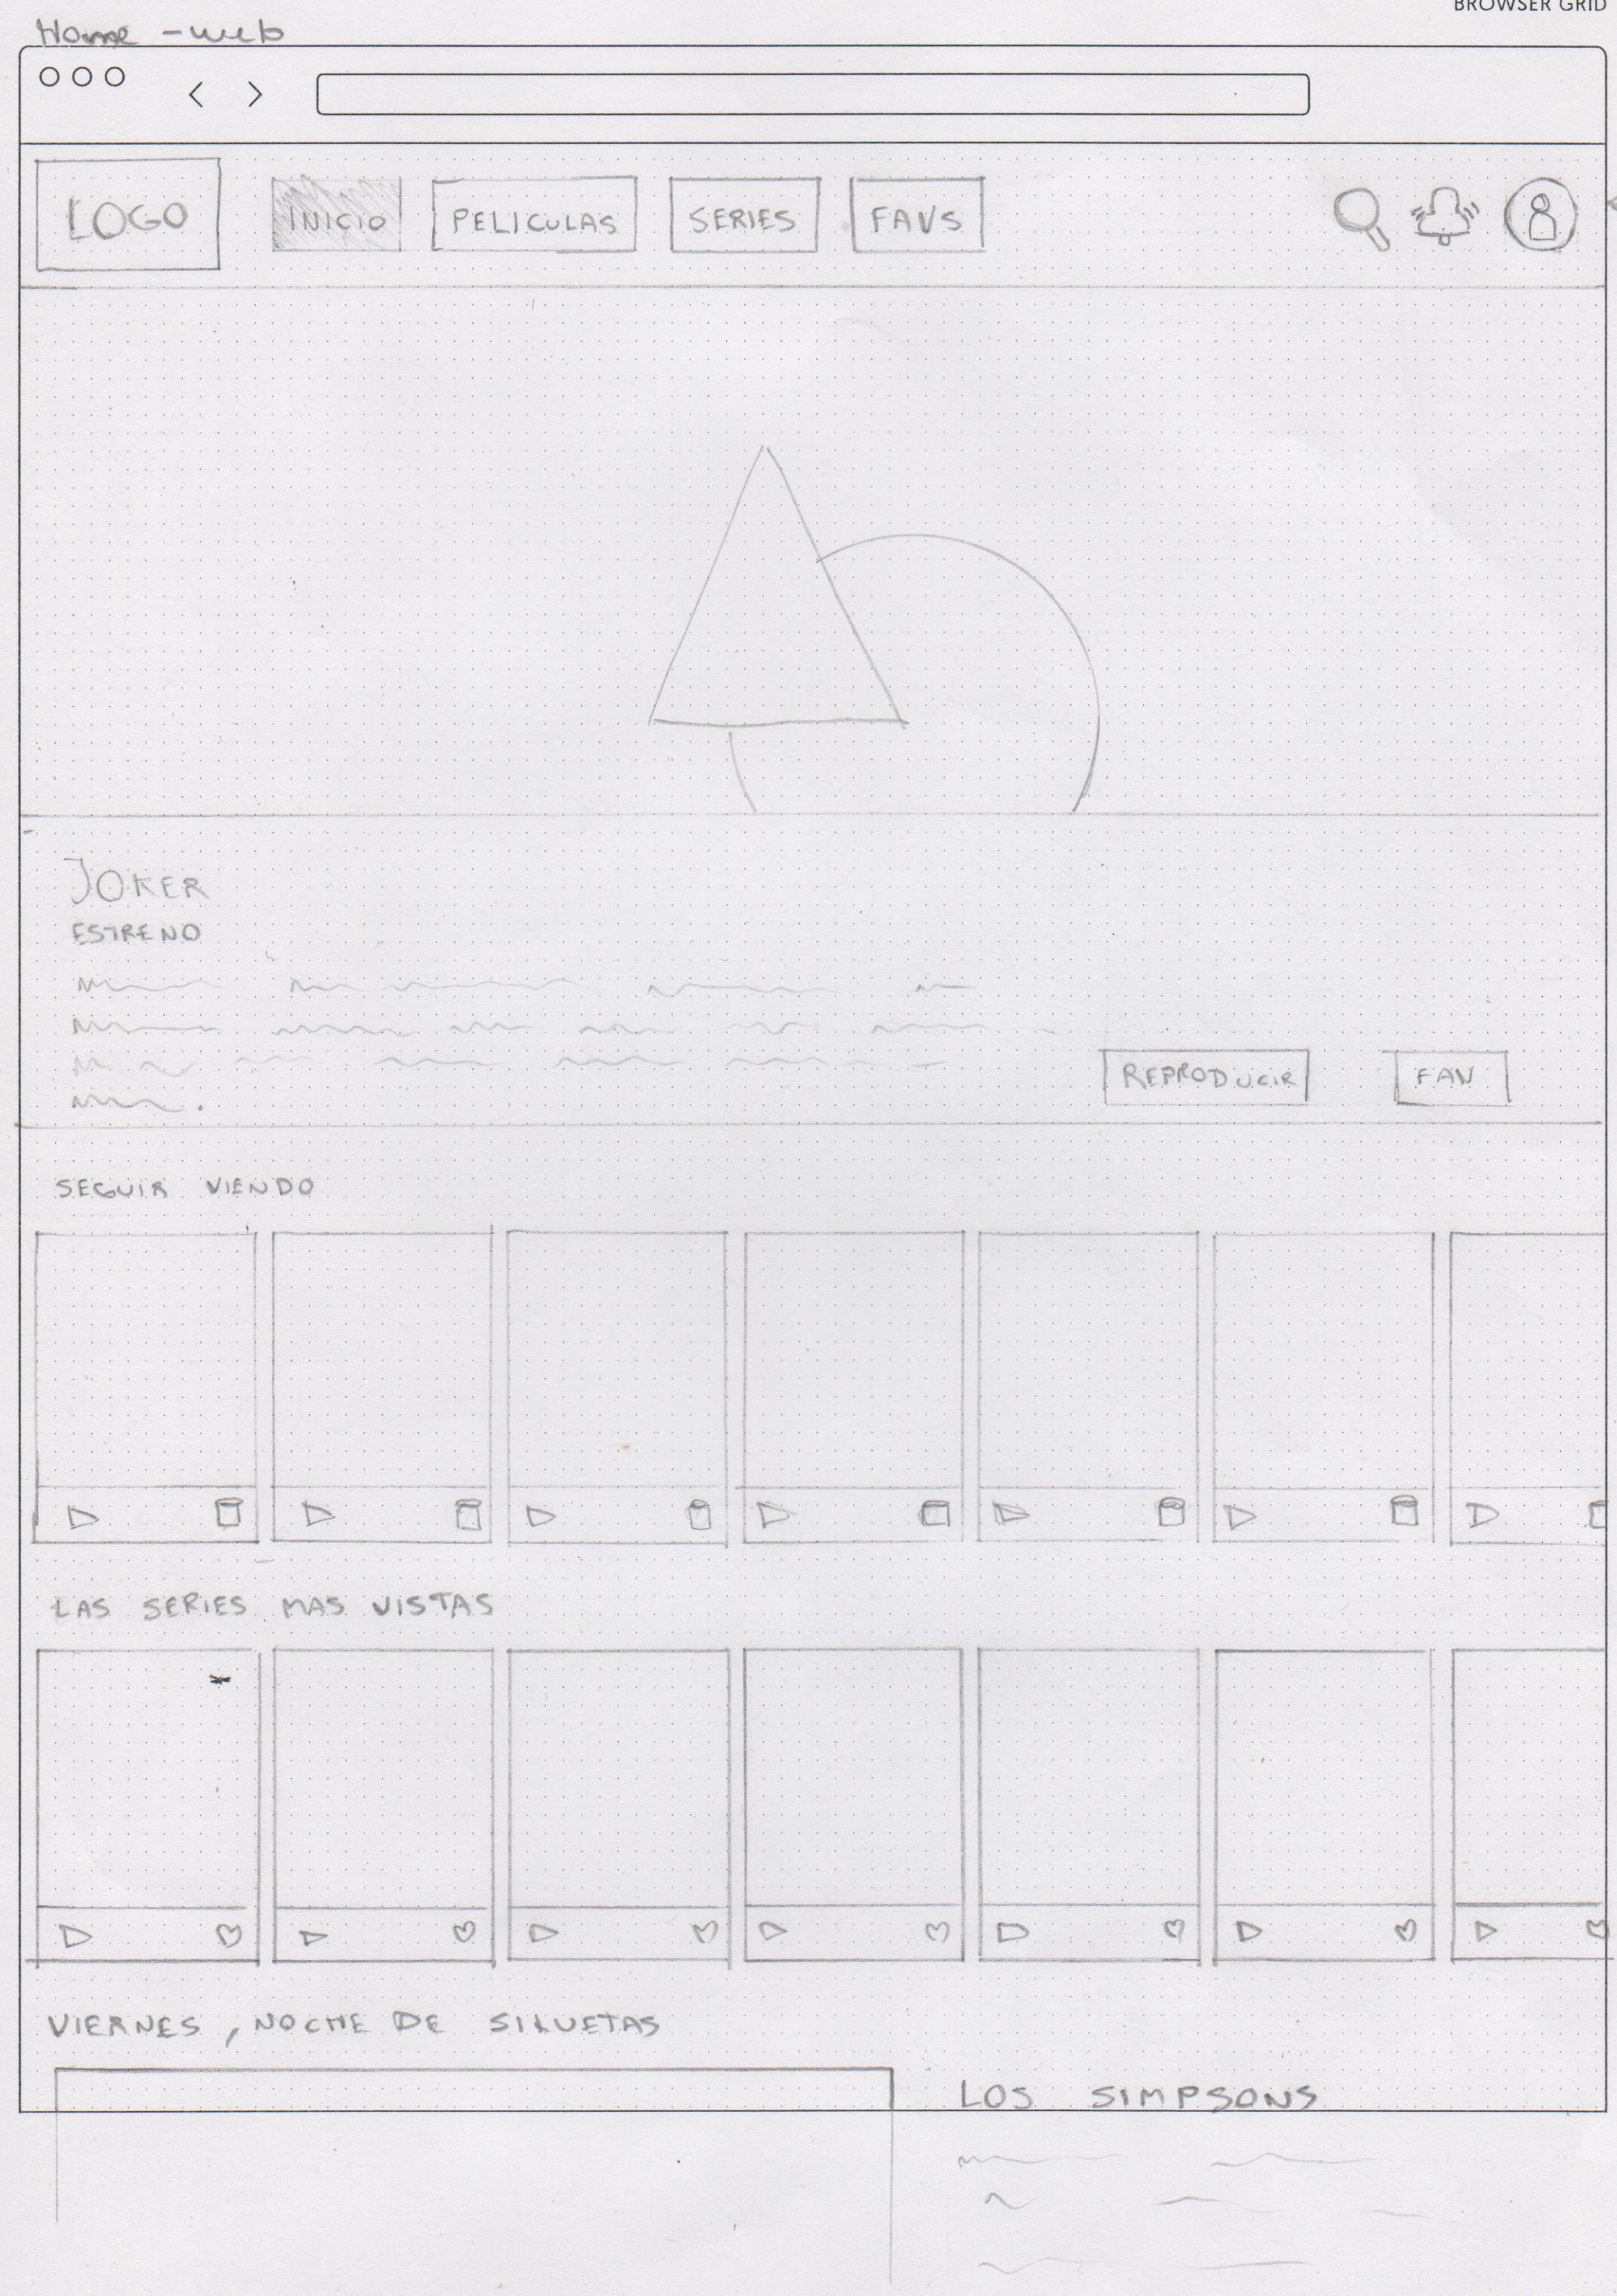 BROWSER GRID
Home - web
LOGO INICIO PELICULAS SERIES FAVS
JOKER
ESTRENO
REPRODUCIR FAV
SEGUIR VIENDO
LAS SERIES MAS VISTAS
VIERNES, NOCHE DE SILUETAS
LOS SIMPSONS